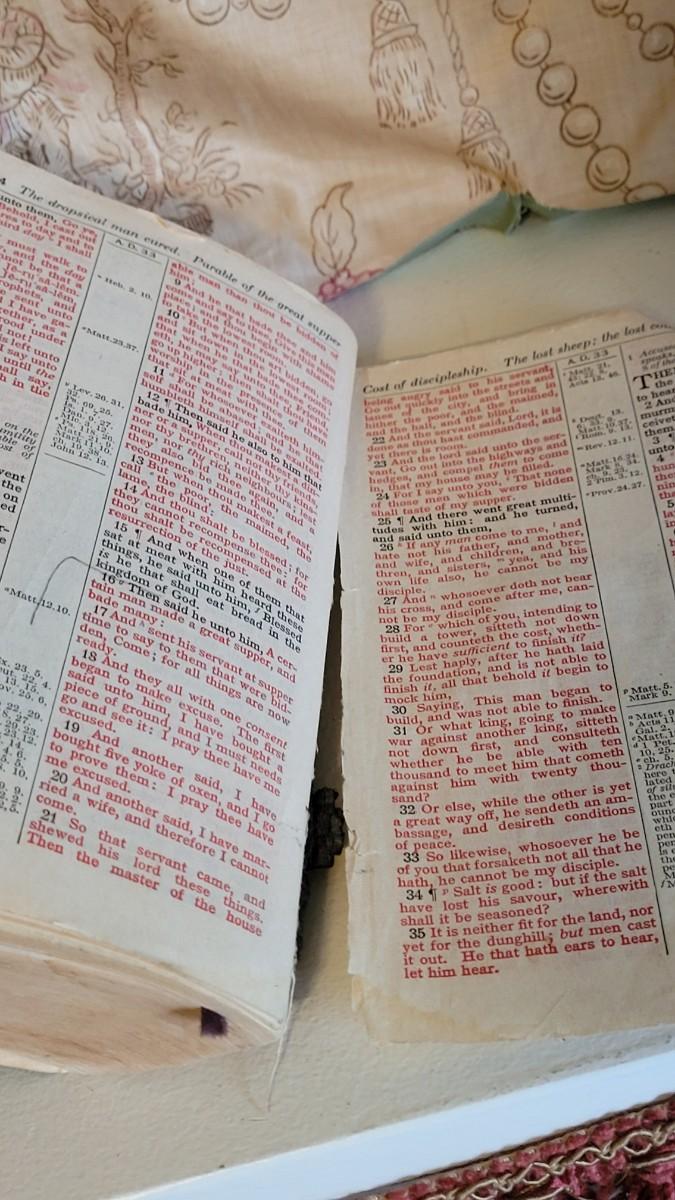 4 The dropsical man cured. Parable of the great supper
unto them, Go ye
Behold, I cast out
must walk to
and the day
not be that a
Jĕ-ru̯'să-lĕm.
sent unto
I have ga-
gether as a
brood under
not!
is left unto
I say unto
until the
shall say,
in the
on the
cent
the
on
ed
A. D. 33
Heb. 2. 10.
Matt. 23. 37.
Lev. 26. 31,
32.
Ps. 69. 25.
John 12. 13.
Matt. 12. 10.
Ex. 23. 5.
able man than thou be bidden of
him;
9 And he that bade thee and him
come and say to thee, Give this man
place; and thou begin with shame
to take the lowest room.
10 But when thou art bidden, go
and sit down in the lowest room;
that when he that bade thee cometh,
he may say unto thee, Friend,
go up higher: then shalt thou have
worship in the presence of them
that sit at meat with thee.
11 For whosoever exalteth him-
self shall be abased; and he that
humbleth himself shall be exalted.
12 ¶ Then said he also to him that
bade him, When thou makest a din-
ner or a supper, call not thy friends,
nor thy brethren, neither thy kins-
men, nor thy rich neighbours; lest
they also bid thee again, and a
recompence be made thee.
13 But when thou makest a feast,
call the poor, the maimed, the
lame, the blind:
14 And thou shalt be blessed; for
they cannot recompense thee: for
thou shalt be recompensed at the
resurrection of the just.
15 ¶ And when one of them that
sat at meat with him heard these
things, he said unto him, Blessed
is he that shall eat bread in the
kingdom of God.
16 Then said he unto him, A cer-
tain man made a great supper, and
bade many:
17 And sent his servant at supper
time to say to them that were bid-
den, Come; for all things are now
ready.
18 And they all with one consent
began to make excuse. The first
said unto him, I have bought a
piece of ground, and I must needs
go and see it: I pray thee have me
excused.
19 And another said, I have
bought five yoke of oxen, and I go
to prove them: I pray thee have
me excused.
20 And another said, I have mar-
ried a wife, and therefore I cannot
come.
21 So that servant came, and
shewed his lord these things.
Then the master of the house
Cost of discipleship. The lost sheep; the lost
being angry said to his servant,
Go out quickly into the streets and
lanes of the city, and bring in
hither the poor, and the maimed,
and the halt, and the blind.
22 And the servant said, Lord, it is
done as thou hast commanded, and
yet there is room.
23 And the lord said unto the ser-
vant, Go out into the highways and
hedges, and compel them to come
in, that my house may be filled.
24 For I say unto you, That none
of those men which were bidden
shall taste of my supper.
25 ¶ And there went great multi-
tudes with him: and he turned,
and said unto them,
26 If any man come to me, and
hate not his father, and mother,
and wife, and children, and bre-
thren, and sisters, yea, and his
own life also, he cannot be my
disciple.
27 And whosoever doth not bear
his cross, and come after me, can-
not be my disciple.
28 For which of you, intending to
build a tower, sitteth not down
first, and counteth the cost, wheth-
er he have sufficient to finish it?
29 Lest haply, after he hath laid
the foundation, and is not able to
finish it, all that behold it begin to
mock him,
30 Saying, This man began to
build, and was not able to finish.
31 Or what king, going to make
war against another king, sitteth
not down first, and consulteth
whether he be able with ten
thousand to meet him that cometh
against him with twenty thou-
sand?
32 Or else, while the other is yet
a great way off, he sendeth an am-
bassage, and desireth conditions
of peace.
33 So likewise, whosoever he be
of you that forsaketh not all that he
hath, he cannot be my disciple.
34 ¶ p Salt is good: but if the salt
have lost his savour, wherewith
shall it be seasoned?
35 It is neither fit for the land, nor
yet for the dunghill; but men cast
it out. He that hath ears to hear,
let him hear.
A. D. 33
Rev. 12. 11.
Matt. 16. 24.
Mark 8. 34.
ch. 9. 23.
2 Tim. 3. 12.
Prov. 24. 27.
p Matt. 5.
Mark 9.
THEN